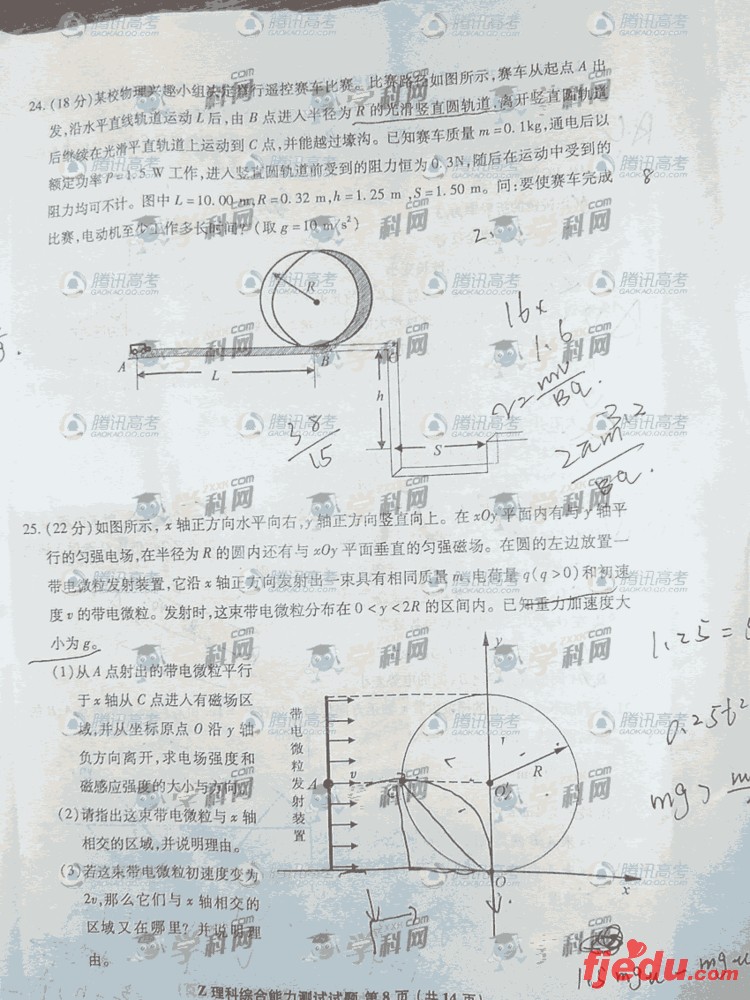 24.(18分)某校物理兴趣小组决定举行遥控赛车比赛。比赛路径如图所示,赛车从起点A出
发,沿水平直线轨道运动L后,由B点进入半径为R的光滑竖直圆轨道,离开竖直圆轨道
后继续在光滑平直轨道上运动到C点,并能越过壕沟。已知赛车质量m=0.1kg,通电后以
额定功率P=1.5W工作,进入竖直圆轨道前受到的阻力恒为0.3N,随后在运动中受到的
阻力均可不计。图中L=10.00m,R=0.32m,h=1.25m,S=1.50m。问:要使赛车完成
比赛,电动机至少工作多长时间?(取g=10m/s²)
8
2.
R
A
L
B
C
h
S
16x
1.6
r=mv/Bq.
3.2
2πm/Bq.
38/15
25.(22分)如图所示,x轴正方向水平向右,y轴正方向竖直向上。在xOy平面内有与y轴平
行的匀强电场,在半径为R的圆内还有与xOy平面垂直的匀强磁场。在圆的左边放置一
带电微粒发射装置,它沿x轴正方向发射出一束具有相同质量m、电荷量q(q>0)和初速
度v的带电微粒。发射时,这束带电微粒分布在0<y<2R的区间内。已知重力加速度大
小为g。
(1)从A点射出的带电微粒平行
于x轴从C点进入有磁场区
域,并从坐标原点O沿y轴
负方向离开,求电场强度和
磁感应强度的大小与方向。
(2)请指出这束带电微粒与x轴
相交的区域,并说明理由。
(3)若这束带电微粒初速度变为
2v,那么它们与x轴相交的
区域又在哪里?并说明理
由。
带电微粒发射装置
A
v
C
R
O'
O
x
y
1.25=
0.25t²
mg>
mg-u
Z理科综合能力测试试题 第8页(共14页)
腾讯高考
GAOKAO.QQ.COM
学科网
ZXXK.COM
fjedu.com